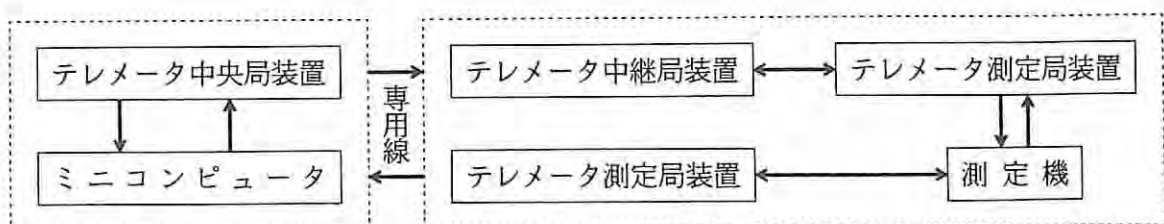 テレメータ中央局装置
ミニコンピュータ
専用線
テレメータ中継局装置
テレメータ測定局装置
テレメータ測定局装置
測定機